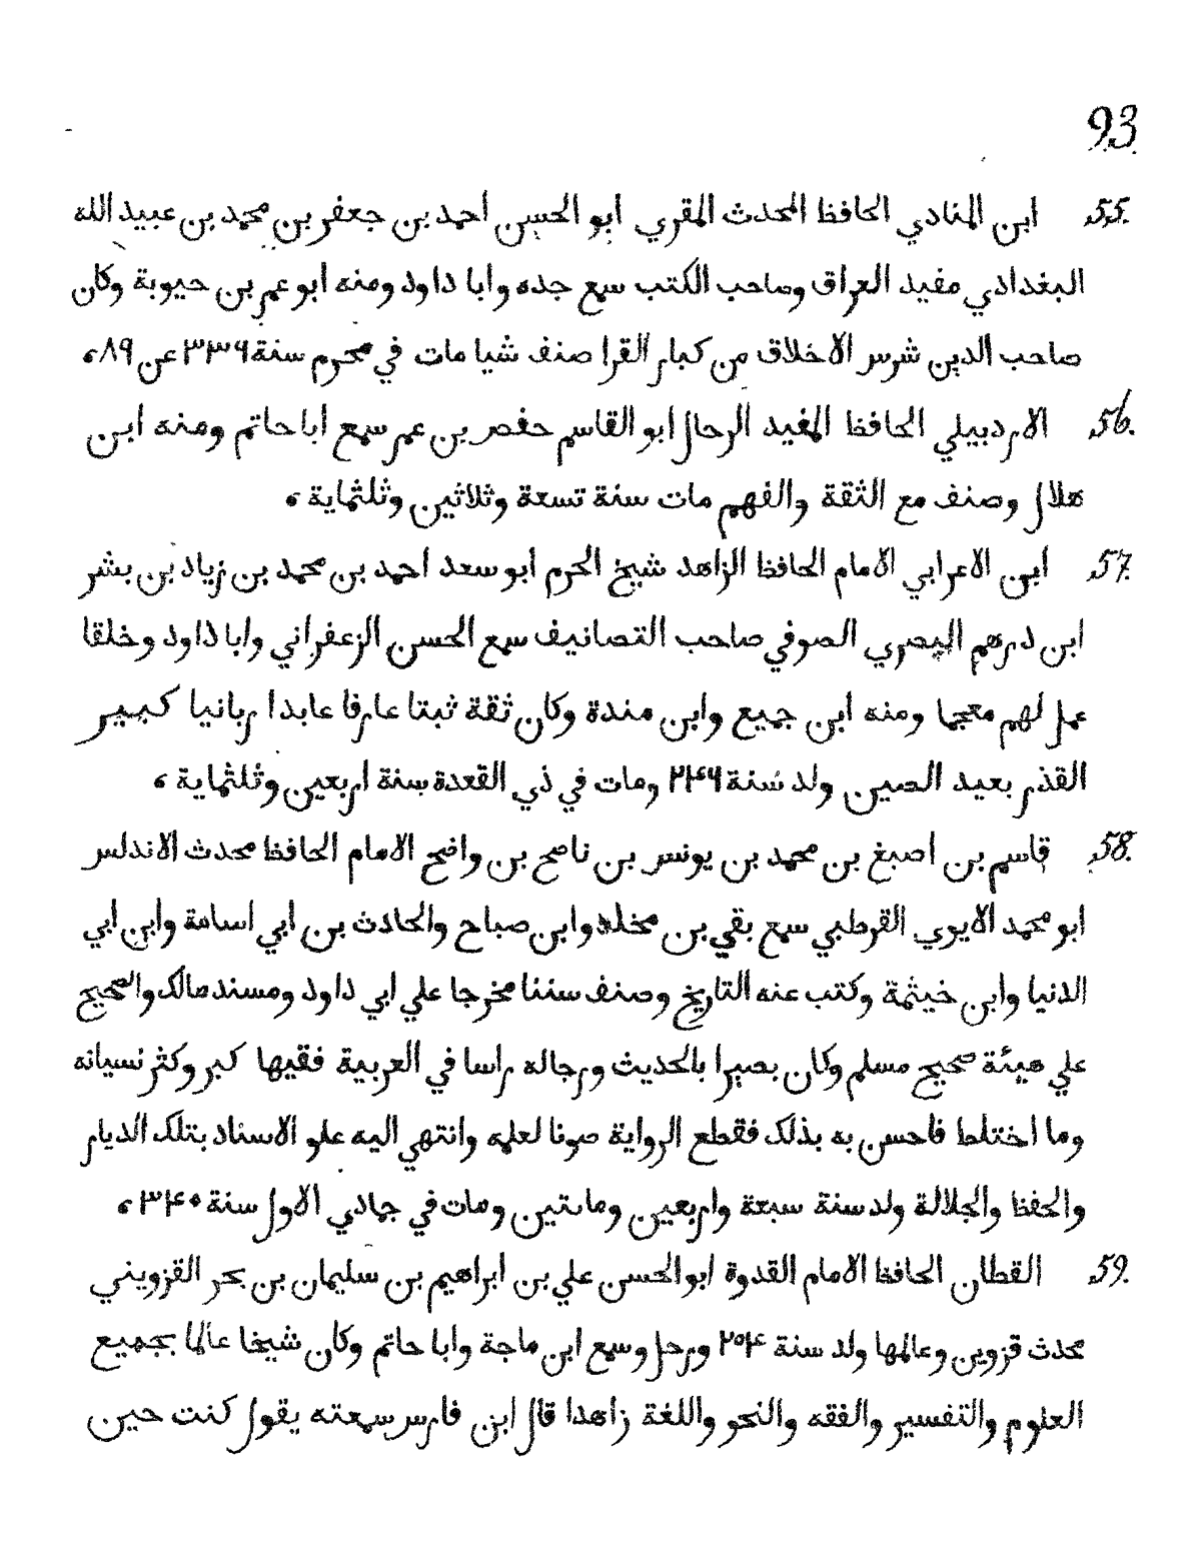 93.
55. ابن المنادي الحافظ المحدث المقري ابو الحسن احمد بن جعفر بن محمد بن عبيد الله
البغدادي مفيد العراق وصاحب الكتب سمع جده وابا داود ومنه ابو عمر بن حيوية وكان
صاحب الدين شرس الاخلاق من كبار القرا صنف شيا مات في محرم سنة ٣٣٦ عن ٨٩،
56. الاردبيلي الحافظ المفيد الرحال ابو القاسم حفص بن عمر سمع ابا حاتم ومنه ابن
هلال وصنف مع الثقة والفهم مات سنة تسعة وثلاثين وثلثماية،
57. ابن الاعرابي الامام الحافظ الزاهد شيخ الحرم ابو سعد احمد بن محمد بن زياد بن بشر
ابن درهم البصري الصوفي صاحب التصانيف سمع الحسن الزعفراني وابا داود وخلقا
عمل لهم معجما ومنه ابن جميع وابن مندة وكان ثقة ثبتا عارفا عابدا ربانيا كبير
القذر بعيد الصين ولد سنة ٢٤٦ ومات في ذي القعدة سنة اربعين وثلثماية،
58. قاسم بن اصبغ بن محمد بن يونس بن ناصح بن واضح الامام الحافظ محدث الاندلس
ابو محمد الايوي القرطبي سمع بقي بن مخلد وابن صباح والحادث بن ابي اسامة وابن ابي
الدنيا وابن خيثمة وكتب عنه التاريخ وصنف سننا مخرجا علي ابي داود ومسند مالك والصحيح
علي هيئة صحيح مسلم وكان بصيرا بالحديث ورجاله راسا في العربية فقيها كبر وكثر نسيانه
وما اختلط فاحسن به بذلك فقطع الرواية صونا لعلمه وانتهي اليه علو الاسناد بتلك الديار
والحفظ والجلالة ولد سنة سبعة واربعين وماىتين ومات في جمادي الاول سنة ٣٤٠،
59. القطان الحافظ الامام القدوة ابو الحسن علي بن ابراهيم بن سليمان بن بحر القزويني
محدث قزوين وعالمها ولد سنة ٢٥٤ ورحل وسمع ابن ماجة وابا حاتم وكان شيخا عالما بجميع
العلوم والتفسير والفقه والنحو واللغة زاهدا قال ابن فارس سمعته يقول كنت حين